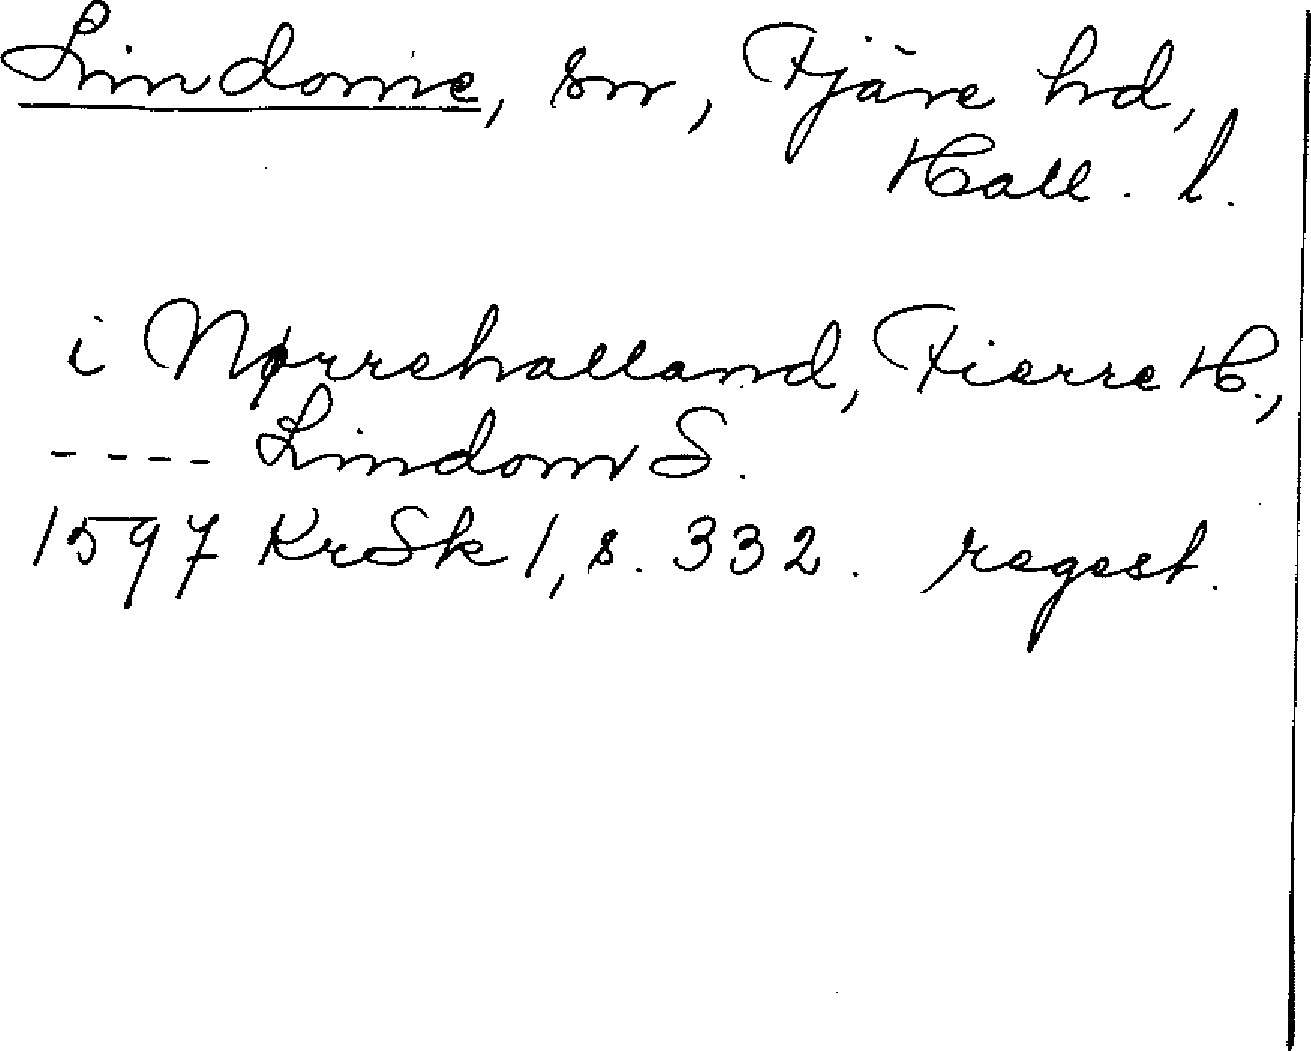 Lindome, sn, Fjäre hd,
Hall. l.
i Nørrehalland, Fierre H.,
---- Lindom S.
1597 KrSk 1, s. 332. regest.